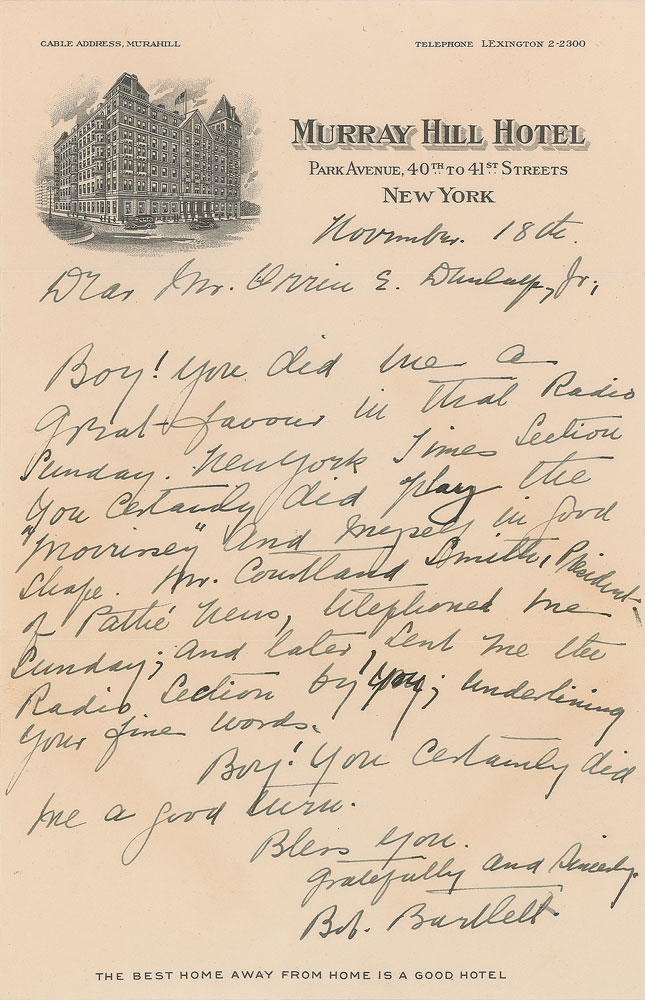 CABLE ADDRESS, MURAHILL
TELEPHONE LEXINGTON 2-2300
MURRAY HILL HOTEL
PARK AVENUE, 40TH TO 41ST STREETS
NEW YORK
November. 18th.
Dear Mr. Orrin E. Dunlap, Jr,
Boy! you did me a
great favour in that Radio
Sunday. New York Times Section
You certainly did play the
"Morrissey" and myself in good
shape. Mr. Courtland Smith, President
of Pathé News, telephoned me
Sunday; and later, sent me the
Radio Section by you; underlining
your fine words.
Boy! You certainly did
me a good turn.
Bless you.
Gratefully and Sincerely.
Bob. Bartlett.
THE BEST HOME AWAY FROM HOME IS A GOOD HOTEL